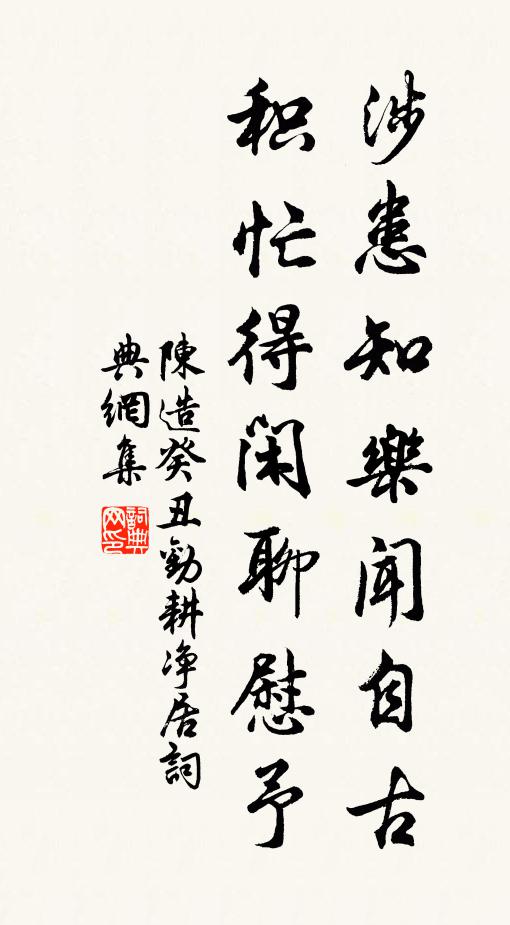 涉患知樂聞自古
积忙得闲聊慰予
陳造癸丑勸耕净居詞
典網集
詞典網印